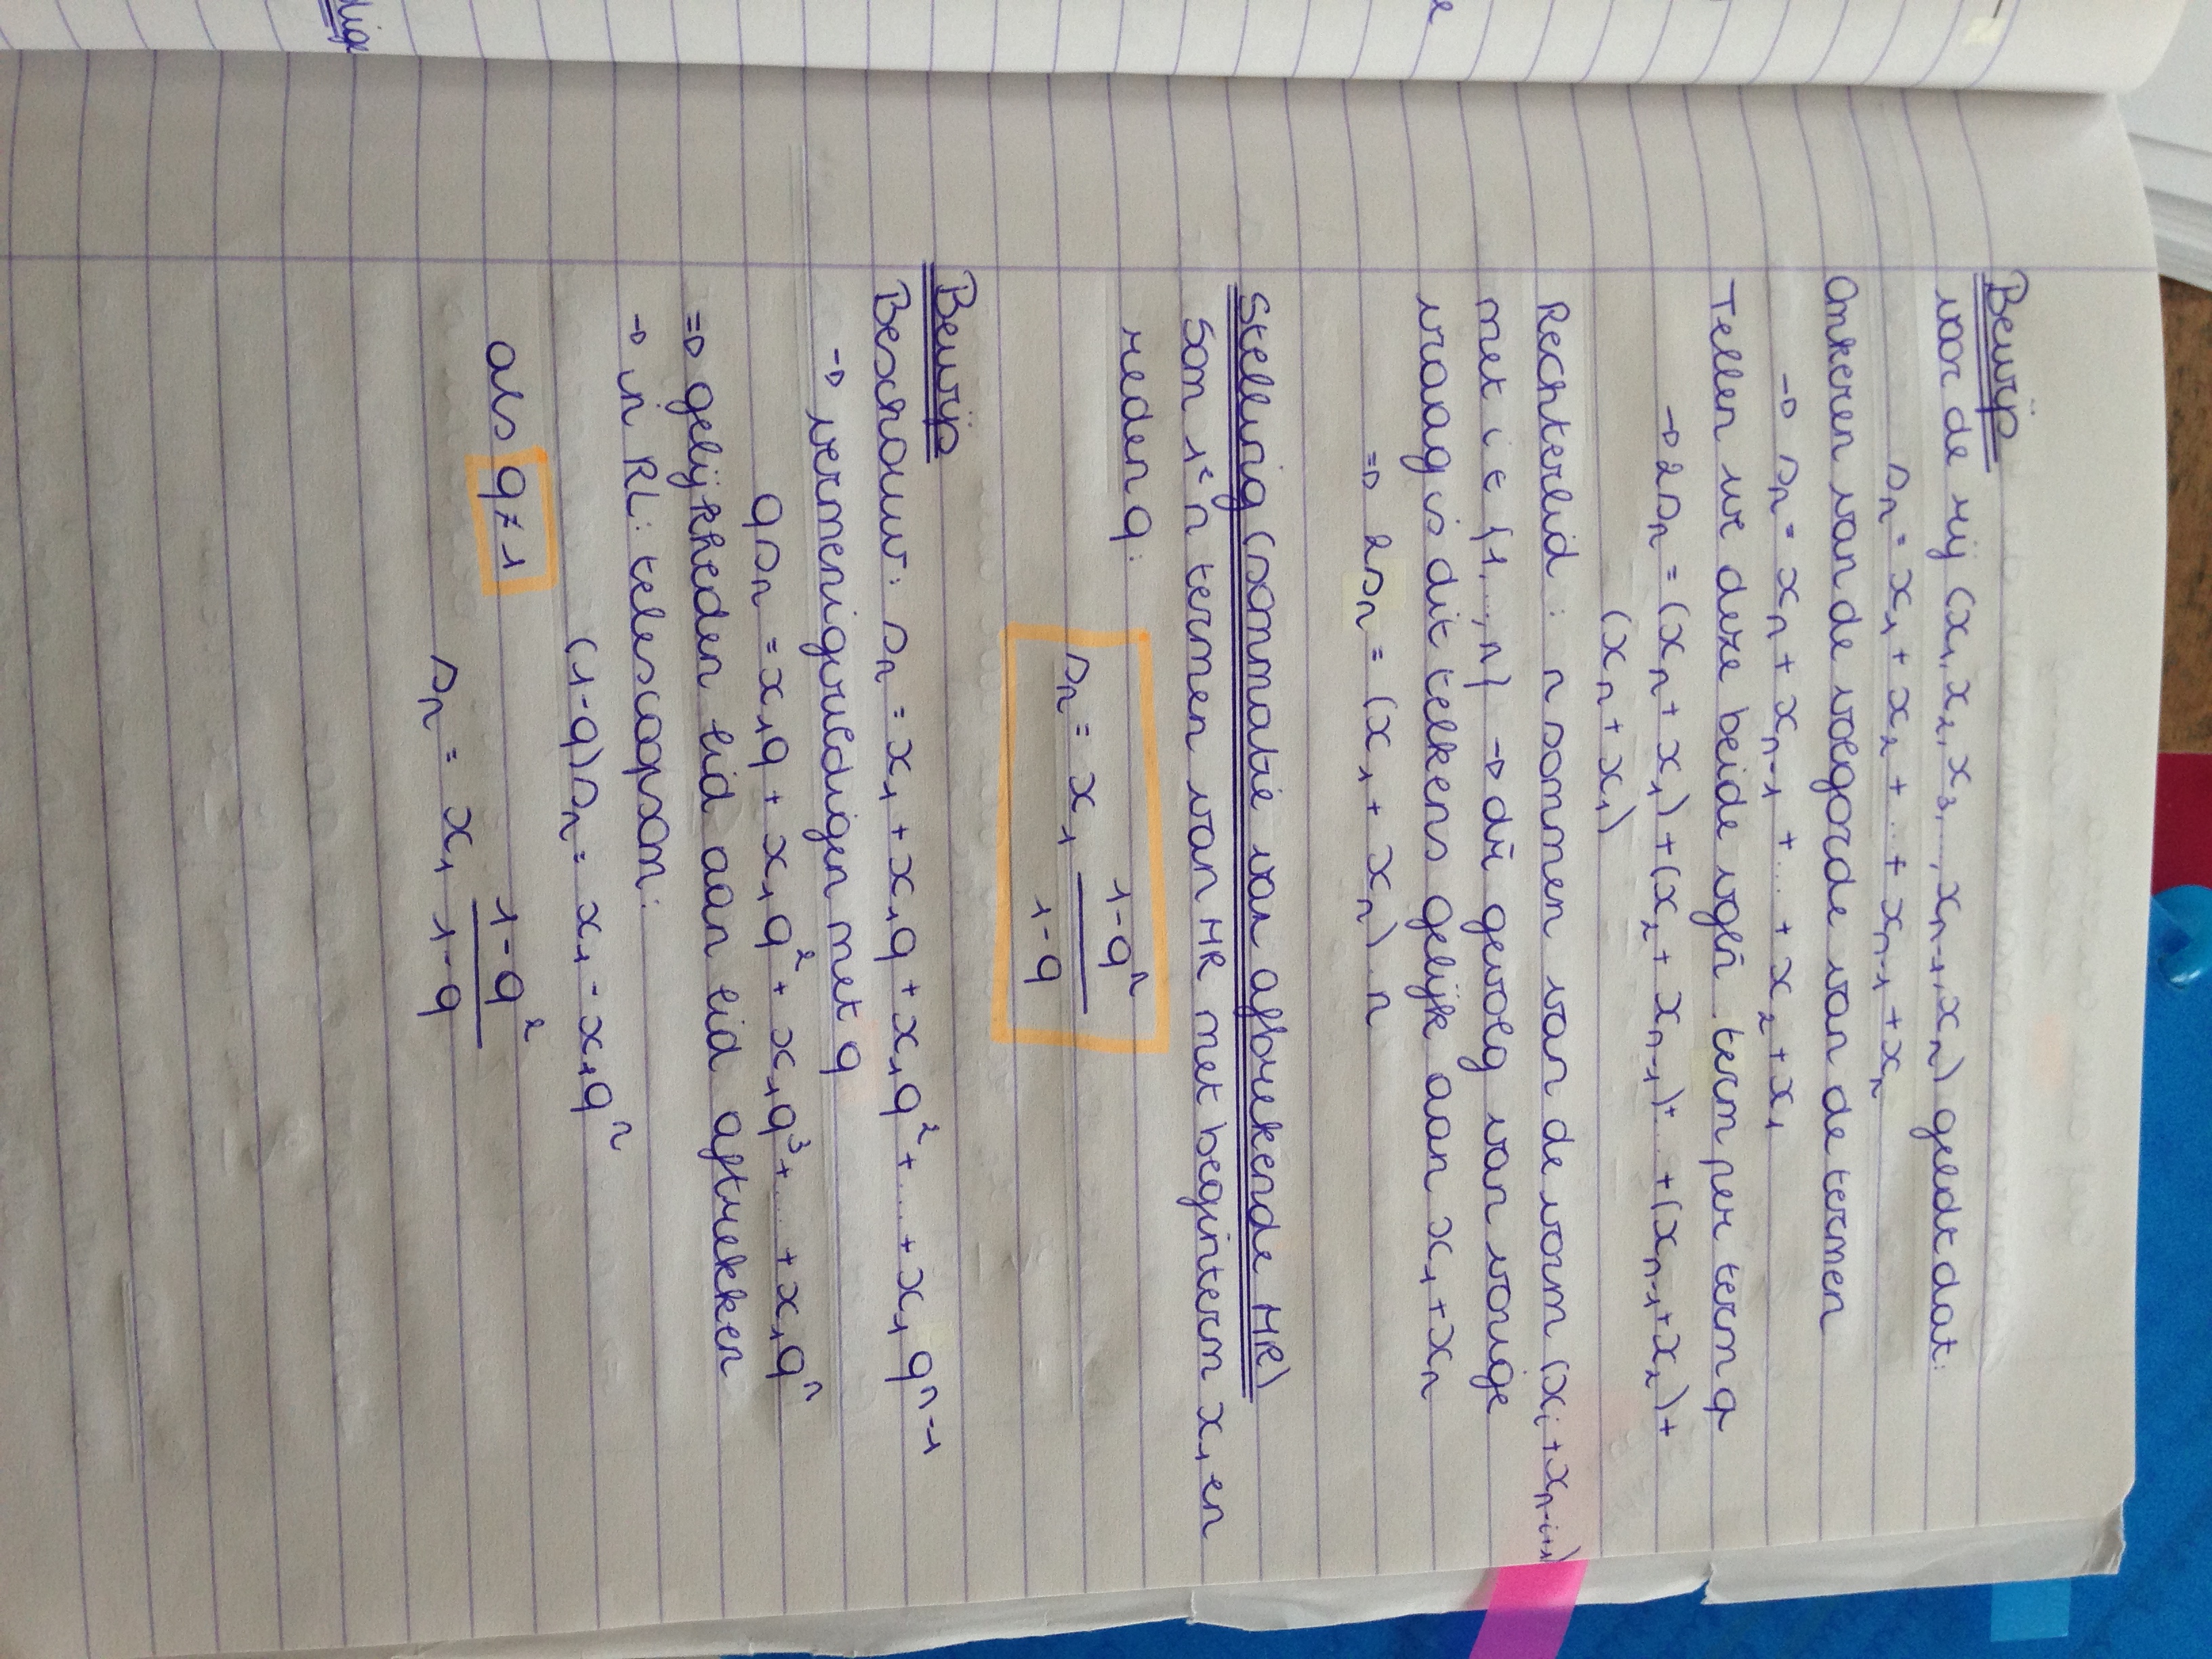 Bewijs
voor de rij (x₁, x₂, x₃, ..., xₙ₋₁, xₙ) geldt dat:
sₙ = x₁ + x₂ + ... + xₙ₋₁ + xₙ
Omkeren van de volgorde van de termen
→ sₙ = xₙ + xₙ₋₁ + ... + x₂ + x₁
Tellen we deze beide vgln term per term q
→ 2sₙ = (xₙ + x₁) + (x₂ + xₙ₋₁) + ... + (xₙ₋₁ + x₂) +
(xₙ + x₁)
Rechterlid : n sommen van de vorm (xᵢ + xₙ₋ᵢ₊₁)
met i ∈ {1, ..., n} → als gevolg van vorige
vraag is dit telkens gelijk aan x₁ + xₙ
⇒ 2sₙ = (x₁ + xₙ) . n
Stelling (sommatie van afbrekende MR)
Som 1ᵉ n termen van MR met beginterm x₁ en
reden q:
sₙ = x₁ (1-qⁿ)/(1-q)
Bewijs
Beschouw: sₙ = x₁ + x₁q + x₁q² + ... + x₁qⁿ⁻¹
→ vermenigvuldigen met q
qsₙ = x₁q + x₁q² + x₁q³ + ... + x₁qⁿ
⇒ gelijkheden lid aan lid aftrekken
→ in RL: telescoopsom:
(1-q)sₙ = x₁ - x₁qⁿ
als q ≠ 1
sₙ = x₁ (1-q²)/(1-q)